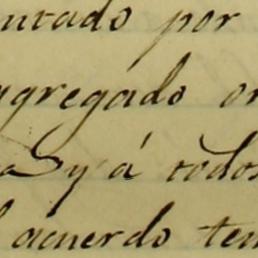 ntado por
agregado or
a y á todos
l acuerdo ten